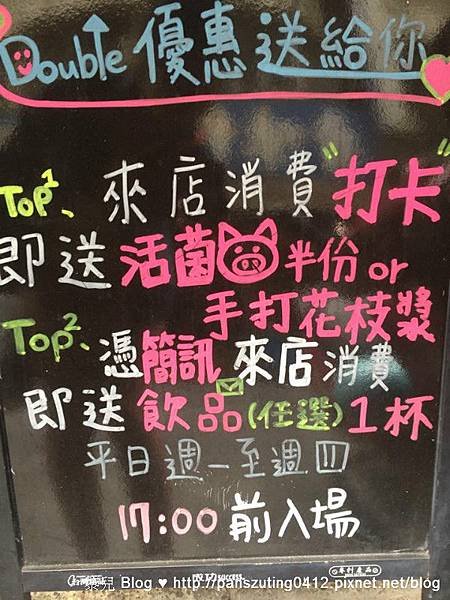 Double 優惠送給你
Top1、來店消費"打卡"
即送活菌半份 or
手打花枝漿
Top2、憑簡訊來店消費
即送飲品(任選)1杯
平日週一至週四
17:00前入場
success
專利產品
Blog ♥ http://panszuting0412.pixnet.net/blog